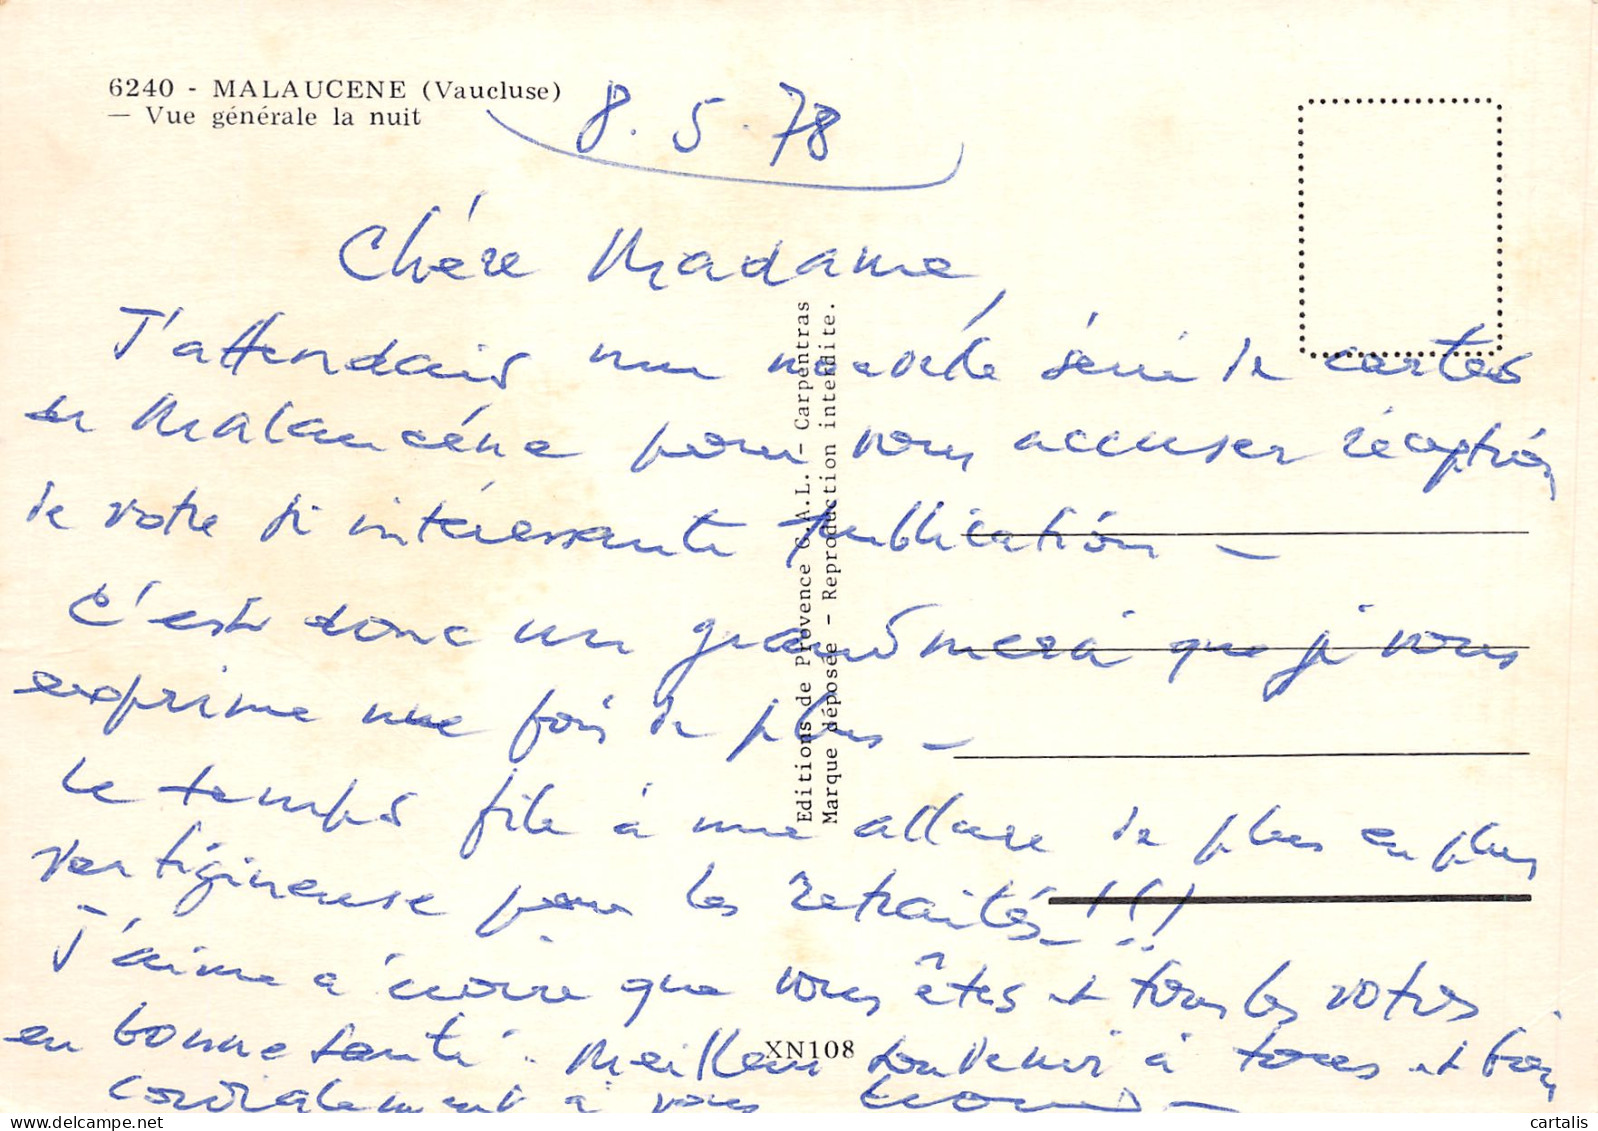 6240 - MALAUCENE (Vaucluse)
— Vue générale la nuit
8.5.78
Chère Madame,
J'attendais une nouvelle série de cartes
de Malaucène pour vous accuser réception
de votre si intéressante Publication -
C'est donc un grand merci que je vous
exprime une fois de plus -
Le temps file à une allure de plus en plus
vertigineuse pour les retraités !!!
J'aime à croire que vous êtes et tous les votres
en bonne santé. Meilleur souvenir à tous et bien
cordialement à vous
Editions de Provence C.A.L. - Carpentras
Marque déposée - Reproduction interdite.
XN108
cartalis